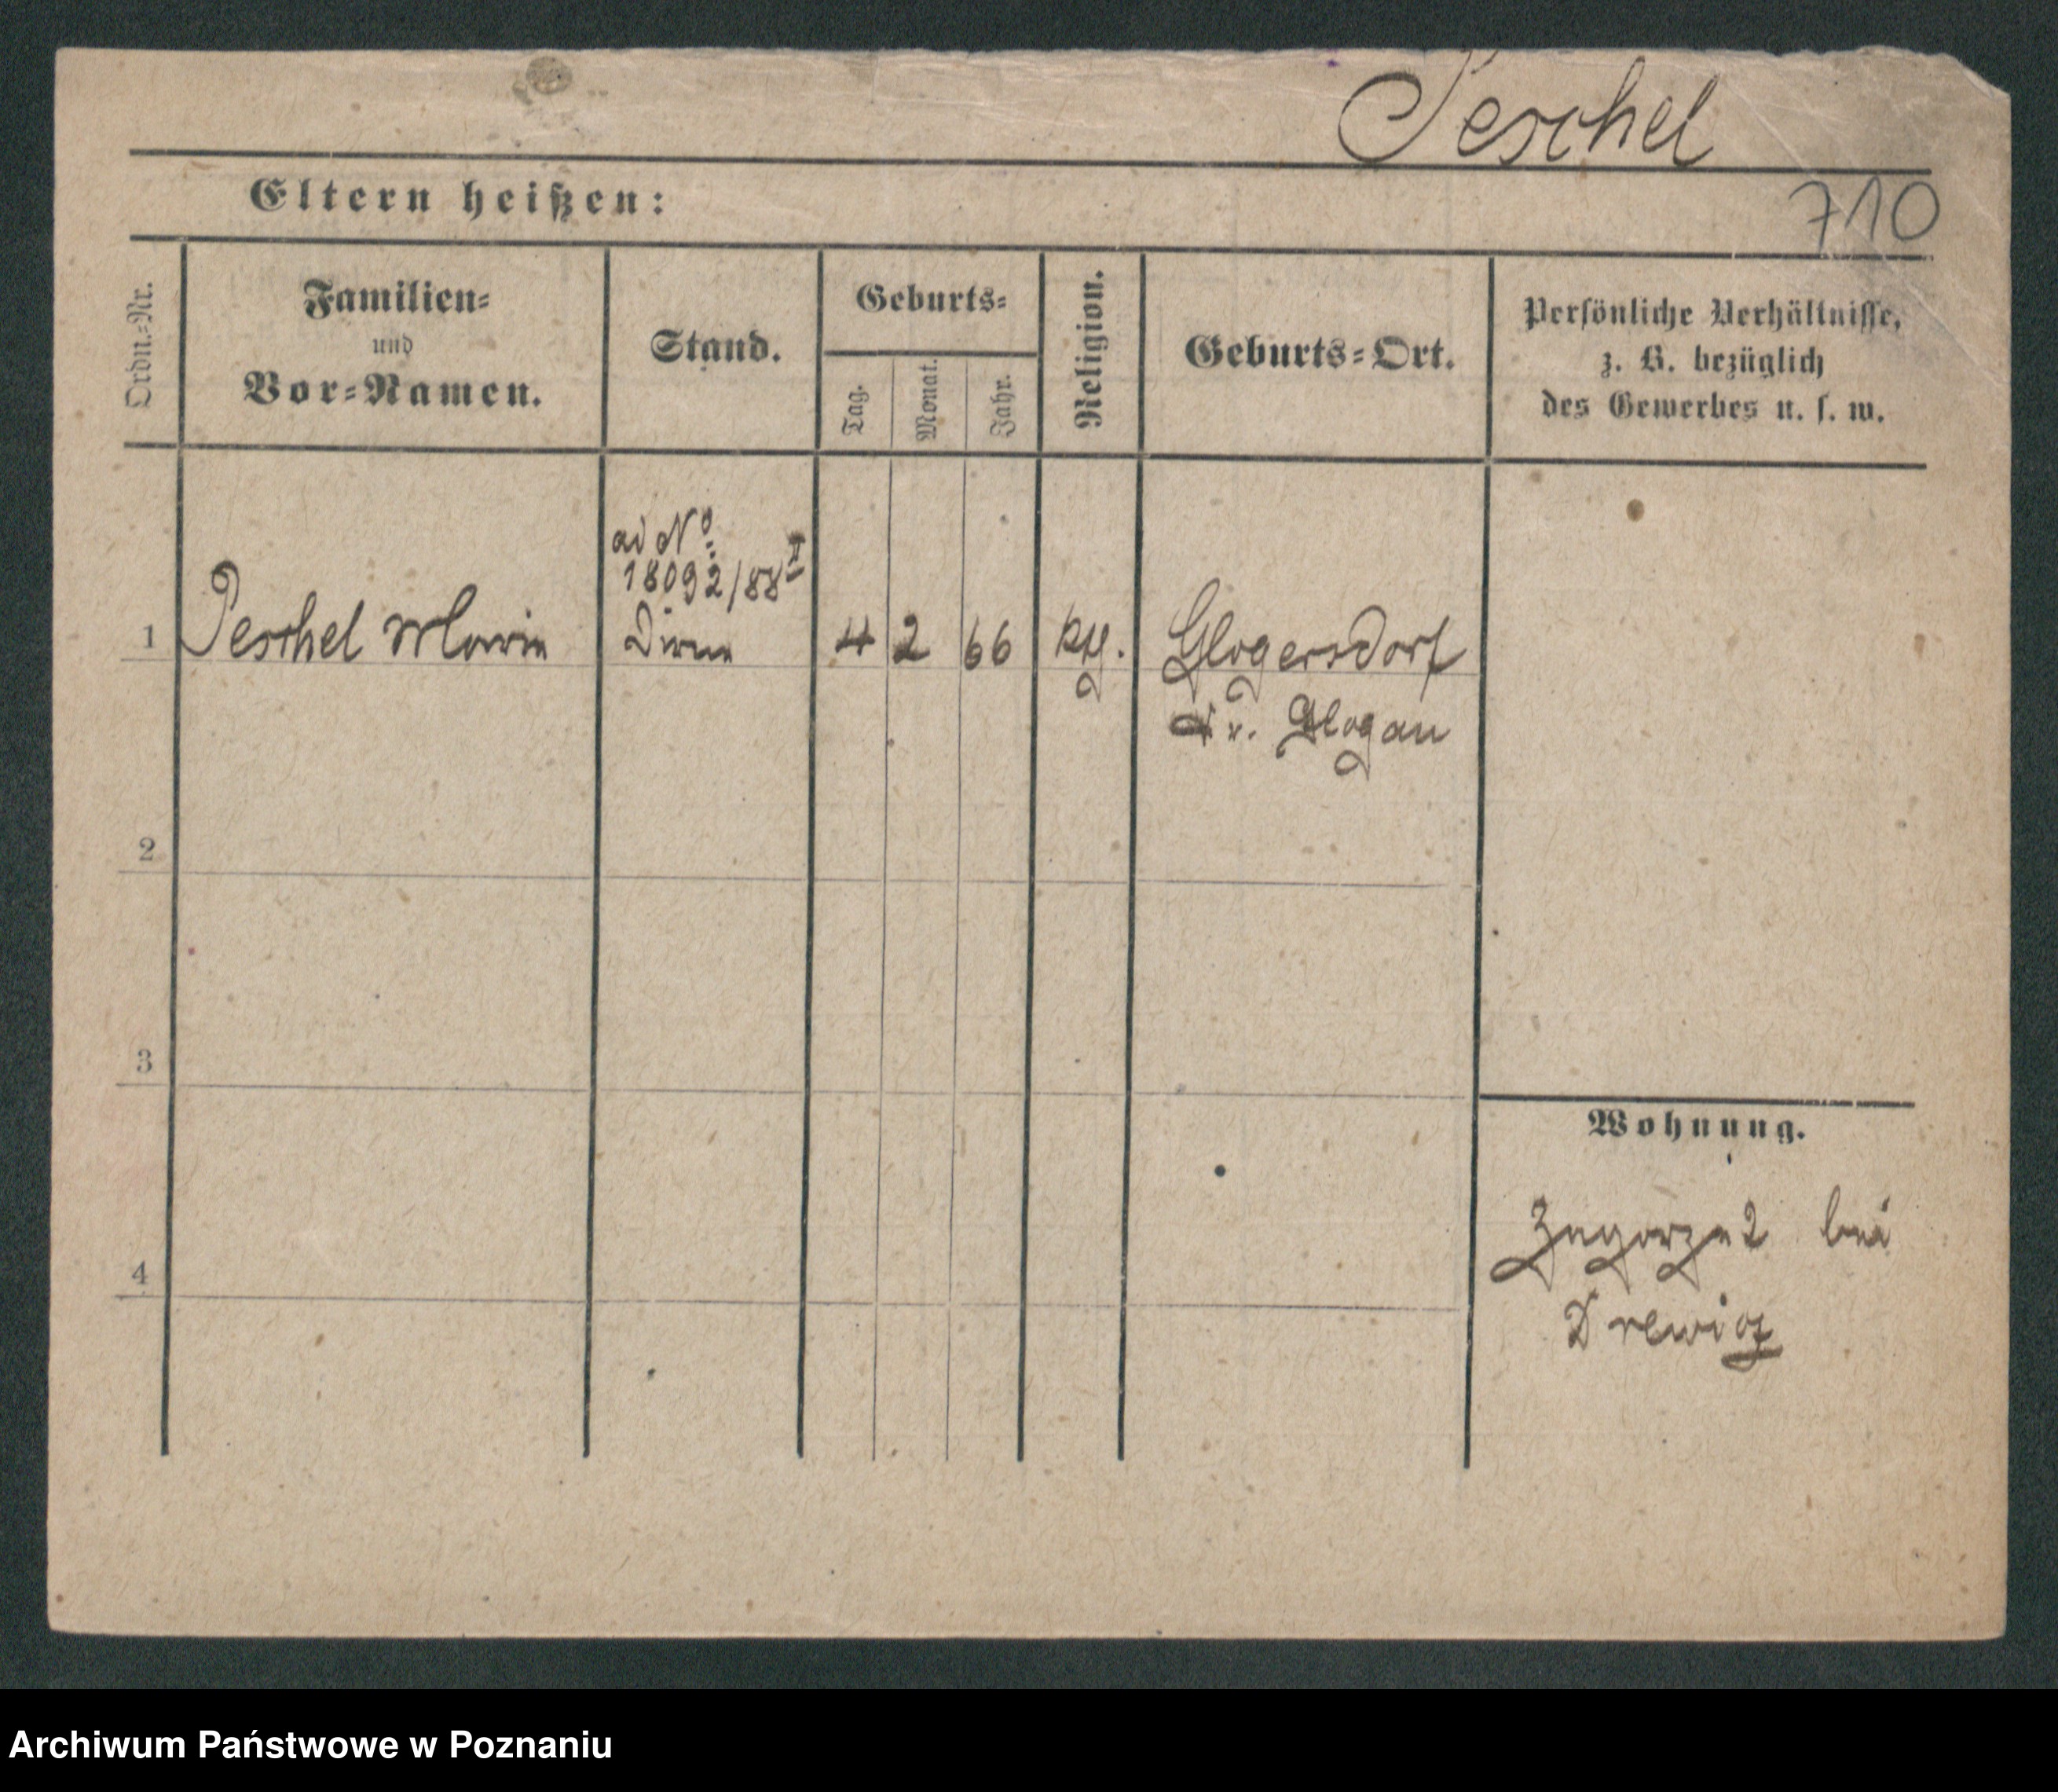 Peschel
Eltern heißen:
710
Ordn.=Nr.
Familien=
und
Vor=Namen.
Stand.
Geburts=
Tag.
Monat.
Jahr.
Religion.
Geburts=Ort.
Persönliche Verhältnisse,
z. B. bezüglich
des Gewerbes u. s. w.
ad No
18092/88 II
1 Peschel Maria Dirne 4 2 66 kth. Glogersdorf
Glogau
2
3
4
Wohnung.
bei
Drewicz
Archiwum Państwowe w Poznaniu